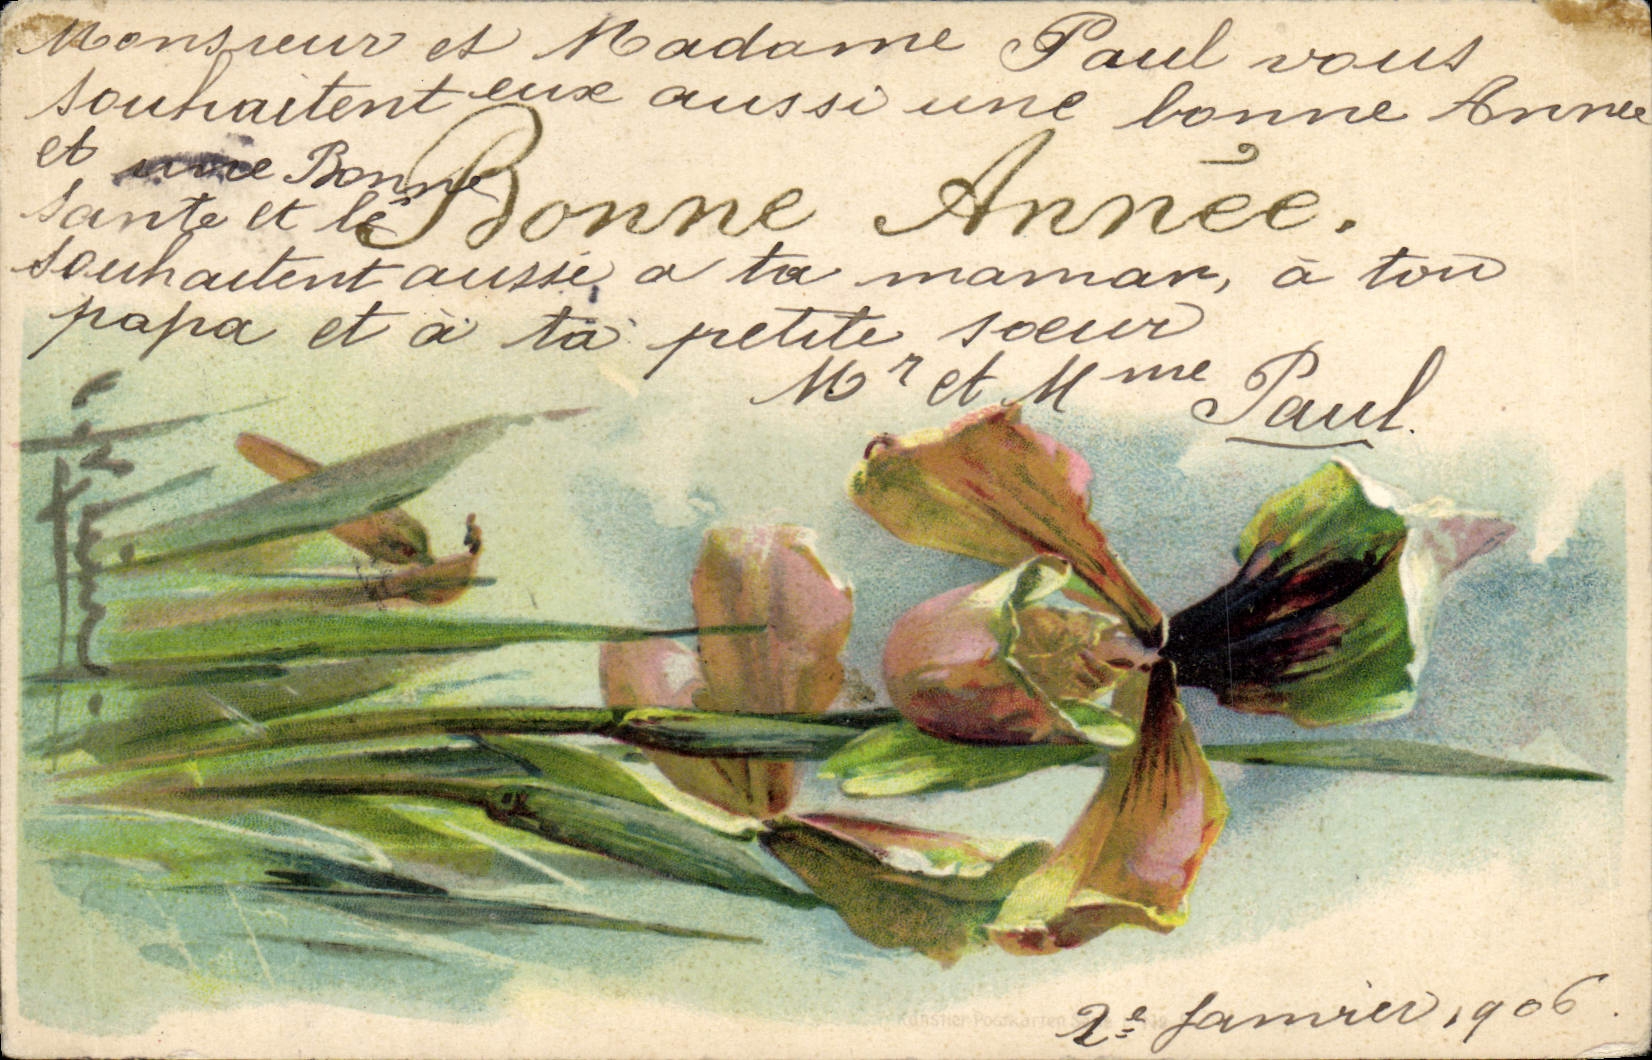 Monsieur et Madame Paul vous
souhaitent eux aussi une bonne Année
et une Bonne
sante et le
Bonne Année.
souhaitent aussi a ta maman, à ton
papa et à ta petite sœur
Mr et Mme Paul.
C. Klein.
Künstler Postkarten
2e Janvier, 1906.